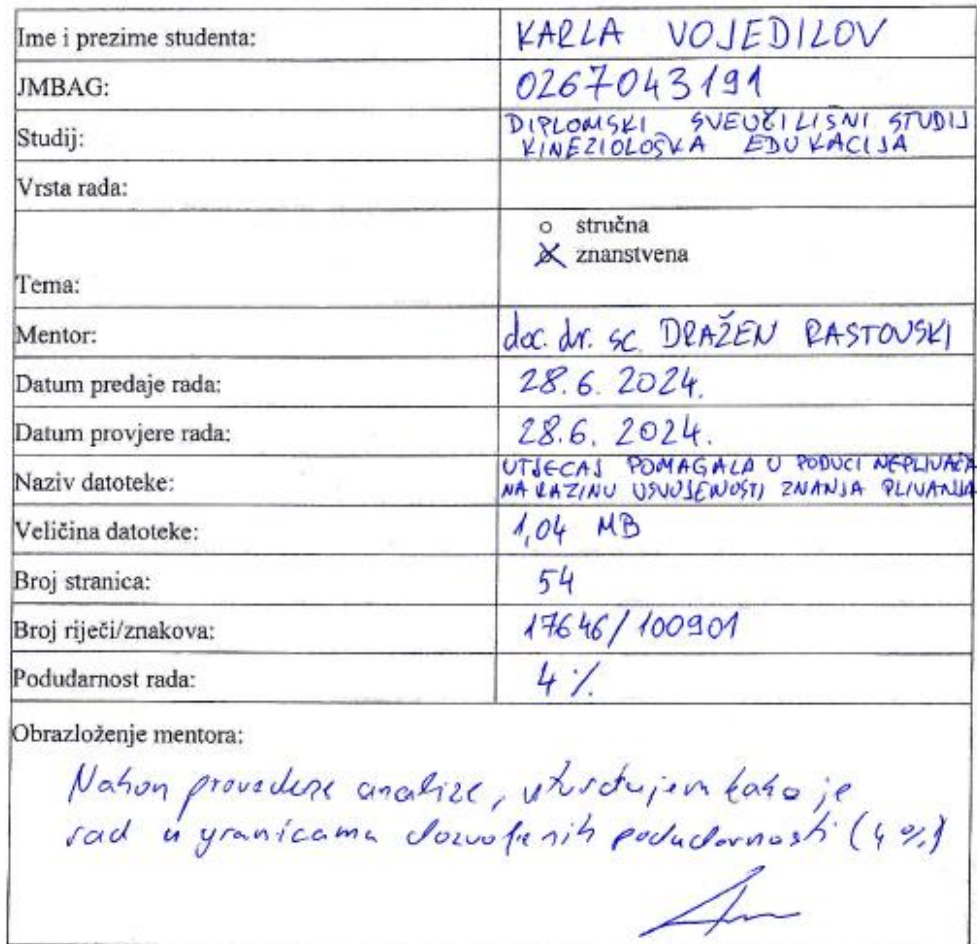 Ime i prezime studenta: KARLA VOJEDILOV
JMBAG: 0267043191
Studij: DIPLOMSKI SVEUČILIŠNI STUDIJ
KINEZIOLOŠKA EDUKACIJA
Vrsta rada:
o stručna
o znanstvena
Tema:
Mentor: doc. dr. sc. DRAŽEN RASTOVSKI
Datum predaje rada: 28.6. 2024.
Datum provjere rada: 28.6. 2024.
Naziv datoteke: UTJECAJ POMAGALA U PODUCI NEPLIVAČA
NA RAZINU USVOJENOSTI ZNANJA PLIVANJA
Veličina datoteke: 1,04 MB
Broj stranica: 54
Broj riječi/znakova: 17646/100901
Podudarnost rada: 4 %
Obrazloženje mentora:
Nakon provedene analize, utvrđujem kako je
rad u granicama dozvoljenih podudarnosti (4 %)